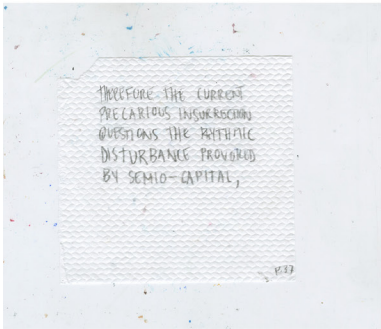 THEREFORE THE CURRENT
PRECARIOUS INSURRECTION
QUESTIONS THE RYTHMIC
DISTURBANCE PROVOKED
BY SEMIO-CAPITAL,
P. 87